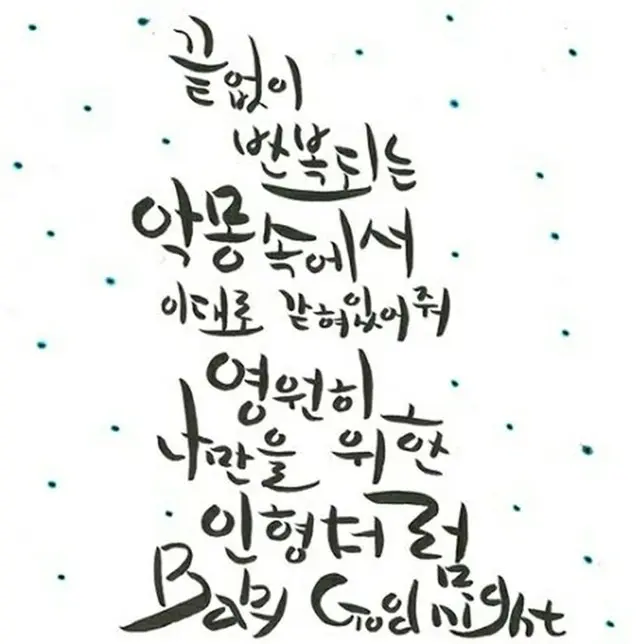 끝없이
반복되는
악몽 속에서
이대로 갇혀있어줘
영원히
나만을 위한
인형처럼
Baby Goodnight